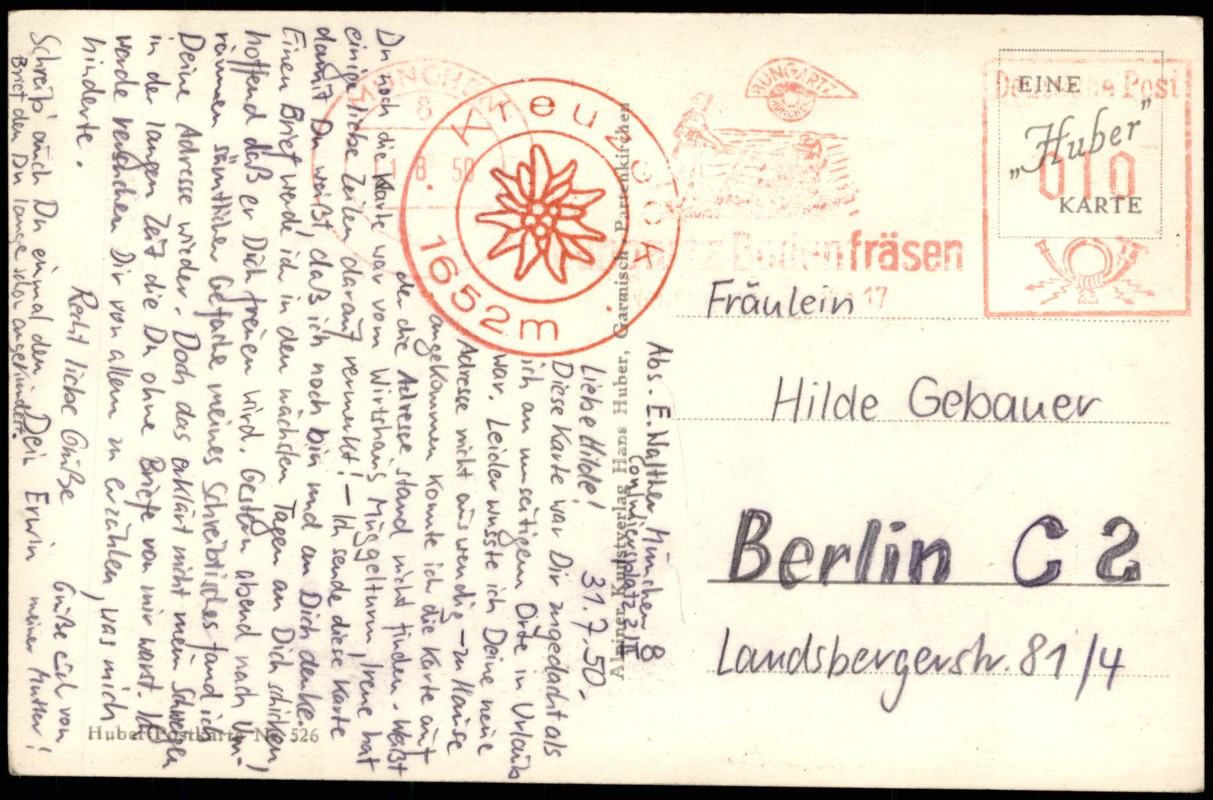 Abs. E. Walther, München 8
31.7.50.
Liebe Hilde!
Diese Karte war Dir zugedacht als
ich an umseitigem Orte in Urlaub
war. Leider wusste ich Deine neue
Adresse nicht auswendig – zu Hause
angekommen konnte ich die Karte auf
der die Adresse stand nicht finden. Weißt
Du noch die Karte war vom Wirtshaus Müggelturm, Irene hat
einige liebe Zeilen darauf vermerkt! – Ich sende diese Karte
damit Du weißt daß ich noch bin und an Dich denke.
Einen Brief werde ich in den nächsten Tagen an Dich schicken,
hoffend daß er Dich freuen wird. Gestern abend nach Um-
räumen sämtlicher Gefache meines Schreibtisches fand ich
Deine Adresse wieder. Doch das erklärt nicht mein Schweigen
in der langen Zeit die Du ohne Briefe von mir warst. Ich
werde versuchen Dir von allem zu erzählen, was mich
hinderte.
Recht liebe Grüße
Dein Erwin
Schreib' auch Du einmal den
Brief den Du lange schon angekündigt.
Grüße auch von
meiner Mutter!
Huber-Postkarte Nr. 526
Alpiner Kunstverlag Hans Huber, Garmisch-Partenkirchen
MÜNCHEN
8
8 50
Kreuzeck
1652m
Bodenfräsen
17
Deutsche Post
010
EINE
„Huber"
KARTE
Fräulein
Hilde Gebauer
Berlin C 2
Landsbergerstr. 81/4